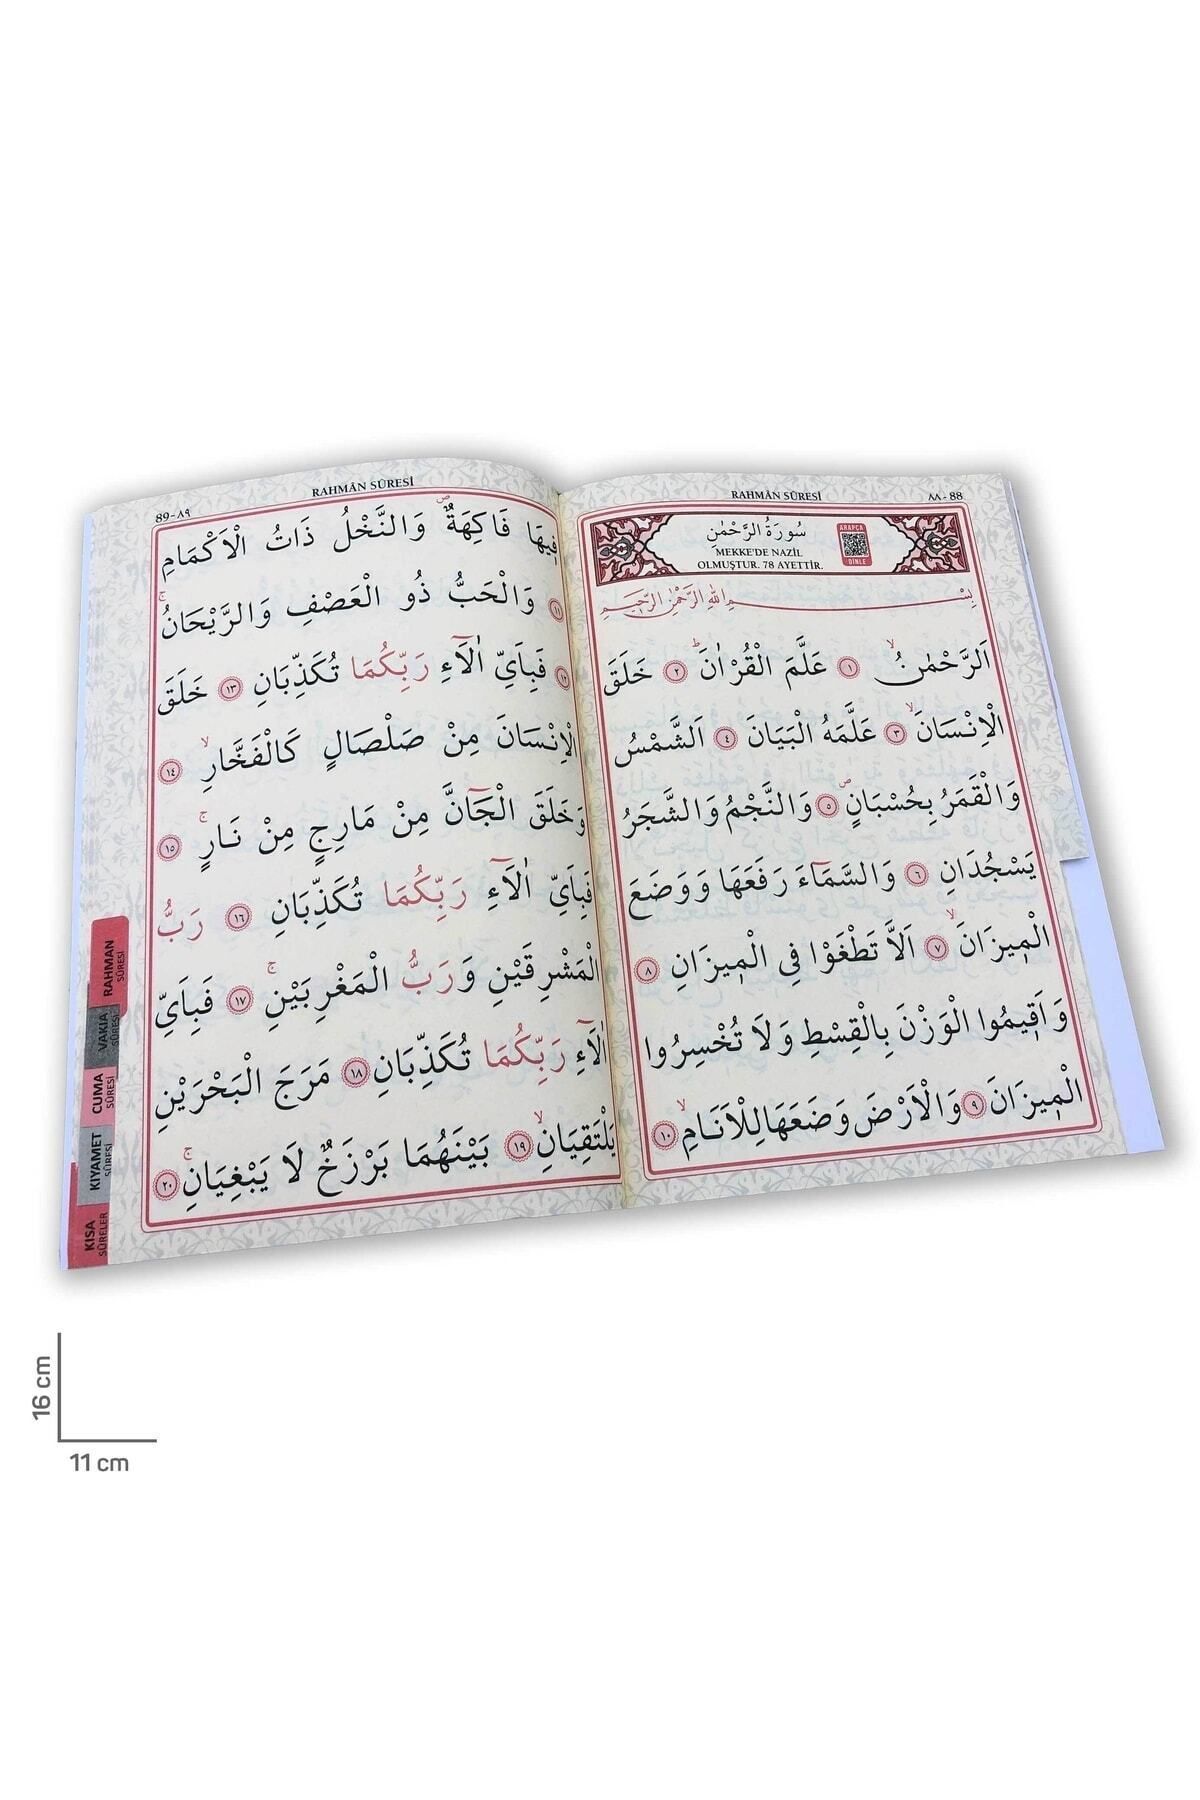 RAHMÂN SÛRESİ
٨٨ - 88
سُورَةُ الرَّحْمٰنِ
MEKKE'DE NAZİL
OLMUŞTUR. 78 AYETTİR.
ARAPÇA
DİNLE
بِسْمِ اللهِ الرَّحْمٰنِ الرَّحِيمِ
اَلرَّحْمٰنُۙ ١ عَلَّمَ الْقُرْاٰنَۜ ٢ خَلَقَ
الْاِنْسَانَۙ ٣ عَلَّمَهُ الْبَيَانَ ٤ اَلشَّمْسُ
وَالْقَمَرُ بِحُسْبَانٍۖ ٥ وَالنَّجْمُ وَالشَّجَرُ
يَسْجُدَانِ ٦ وَالسَّمَٓاءَ رَفَعَهَا وَوَضَعَ
الْم۪يزَانَۙ ٧ اَلَّا تَطْغَوْا فِي الْم۪يزَانِ ٨
وَاَق۪يمُوا الْوَزْنَ بِالْقِسْطِ وَلَا تُخْسِرُوا
الْم۪يزَانَ ٩ وَالْاَرْضَ وَضَعَهَا لِلْاَنَامِۙ ١٠
RAHMÂN SÛRESİ
89 - ٨٩
ف۪يهَا فَاكِهَةٌۖ وَالنَّخْلُ ذَاتُ الْاَكْمَامِ
١١ وَالْحَبُّ ذُو الْعَصْفِ وَالرَّيْحَانُۚ
١٢ فَبِاَيِّ اٰلَٓاءِ رَبِّكُمَا تُكَذِّبَانِ ١٣ خَلَقَ
الْاِنْسَانَ مِنْ صَلْصَالٍ كَالْفَخَّارِۙ ١٤
وَخَلَقَ الْجَٓانَّ مِنْ مَارِجٍ مِنْ نَارٍۚ ١٥
فَبِاَيِّ اٰلَٓاءِ رَبِّكُمَا تُكَذِّبَانِ ١٦ رَبُّ
الْمَشْرِقَيْنِ وَرَبُّ الْمَغْرِبَيْنِۚ ١٧ فَبِاَيِّ
اٰلَٓاءِ رَبِّكُمَا تُكَذِّبَانِ ١٨ مَرَجَ الْبَحْرَيْنِ
يَلْتَقِيَانِۙ ١٩ بَيْنَهُمَا بَرْزَخٌ لَا يَبْغِيَانِۚ ٢٠
RAHMAN
SÛRESİ
VAKIA
SÛRESİ
CUMA
SÛRESİ
KIYAMET
SÛRESİ
KISA
SÛRELER
16 cm
11 cm